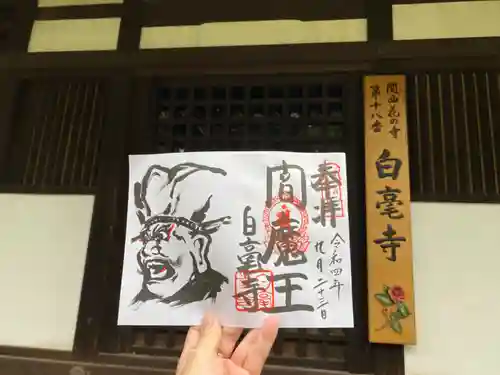 奉拝
令和四年
九月二十三日
閻魔王
白毫寺
関西花の寺
第十八番
白毫寺